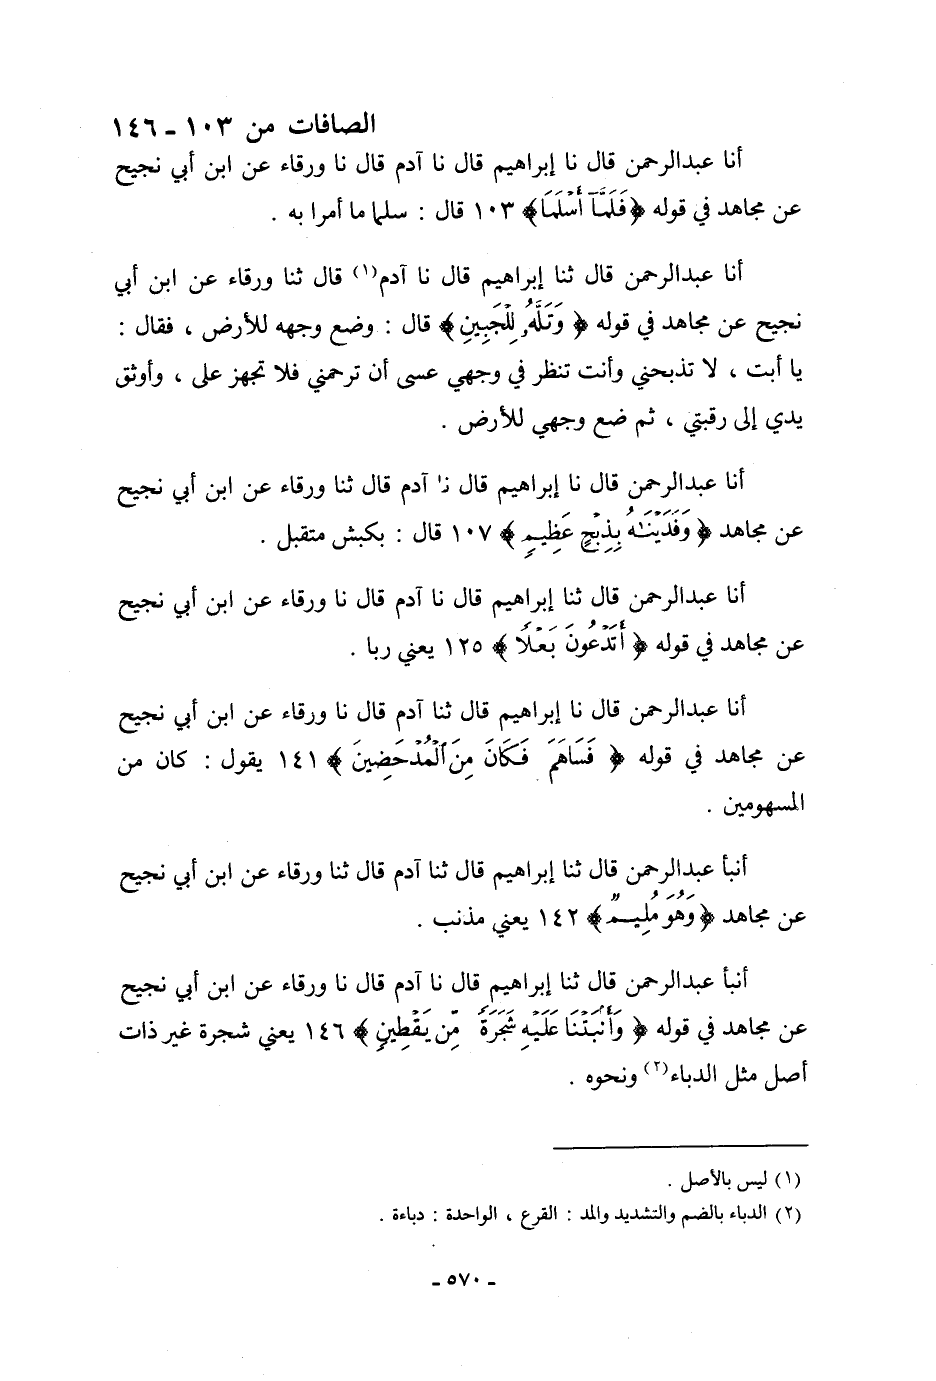 الصافات من ١٠٣ ـ ١٤٦
أنا عبدالرحمن قال نا إبراهيم قال نا آدم قال نا ورقاء عن ابن أبي نجيح
عن مجاهد في قوله ﴿فَلَمَّآ أَسْلَمَا﴾ ١٠٣ قال : سلما ما أمرا به .
أنا عبدالرحمن قال ثنا إبراهيم قال نا آدم(١) قال ثنا ورقاء عن ابن أبي
نجيح عن مجاهد في قوله ﴿ وَتَلَّهُۥ لِلْجَبِينِ ﴾ قال : وضع وجهه للأرض ، فقال :
يا أبت ، لا تذبحني وأنت تنظر في وجهي عسى أن ترحمني فلا تجهز على ، وأوثق
يدي إلى رقبتي ، ثم ضع وجهي للأرض .
أنا عبدالرحمن قال نا إبراهيم قال نا آدم قال ثنا ورقاء عن ابن أبي نجيح
عن مجاهد ﴿ وَفَدَيْنَٰهُ بِذِبْحٍ عَظِيمٍ ﴾ ١٠٧ قال : بكبش متقبل .
أنا عبدالرحمن قال ثنا إبراهيم قال نا آدم قال نا ورقاء عن ابن أبي نجيح
عن مجاهد في قوله ﴿ أَتَدْعُونَ بَعْلًا ﴾ ١٢٥ يعني ربا .
أنا عبدالرحمن قال نا إبراهيم قال ثنا آدم قال نا ورقاء عن ابن أبي نجيح
عن مجاهد في قوله ﴿ فَسَاهَمَ فَكَانَ مِنَ ٱلْمُدْحَضِينَ ﴾ ١٤١ يقول : كان من
المسهومين .
أنبأ عبدالرحمن قال ثنا إبراهيم قال ثنا آدم قال ثنا ورقاء عن ابن أبي نجيح
عن مجاهد ﴿وَهُوَ مُلِيمٌ﴾ ١٤٢ يعني مذنب .
أنبأ عبدالرحمن قال ثنا إبراهيم قال نا آدم قال نا ورقاء عن ابن أبي نجيح
عن مجاهد في قوله ﴿ وَأَنۢبَتْنَا عَلَيْهِ شَجَرَةً مِّن يَقْطِينٍ ﴾ ١٤٦ يعني شجرة غير ذات
أصل مثل الدباء(٢) ونحوه .
(١) ليس بالأصل .
(٢) الدباء بالضم والتشديد والمد : القرع ، الواحدة : دباءة .
ـ ٥٧٠ ـ